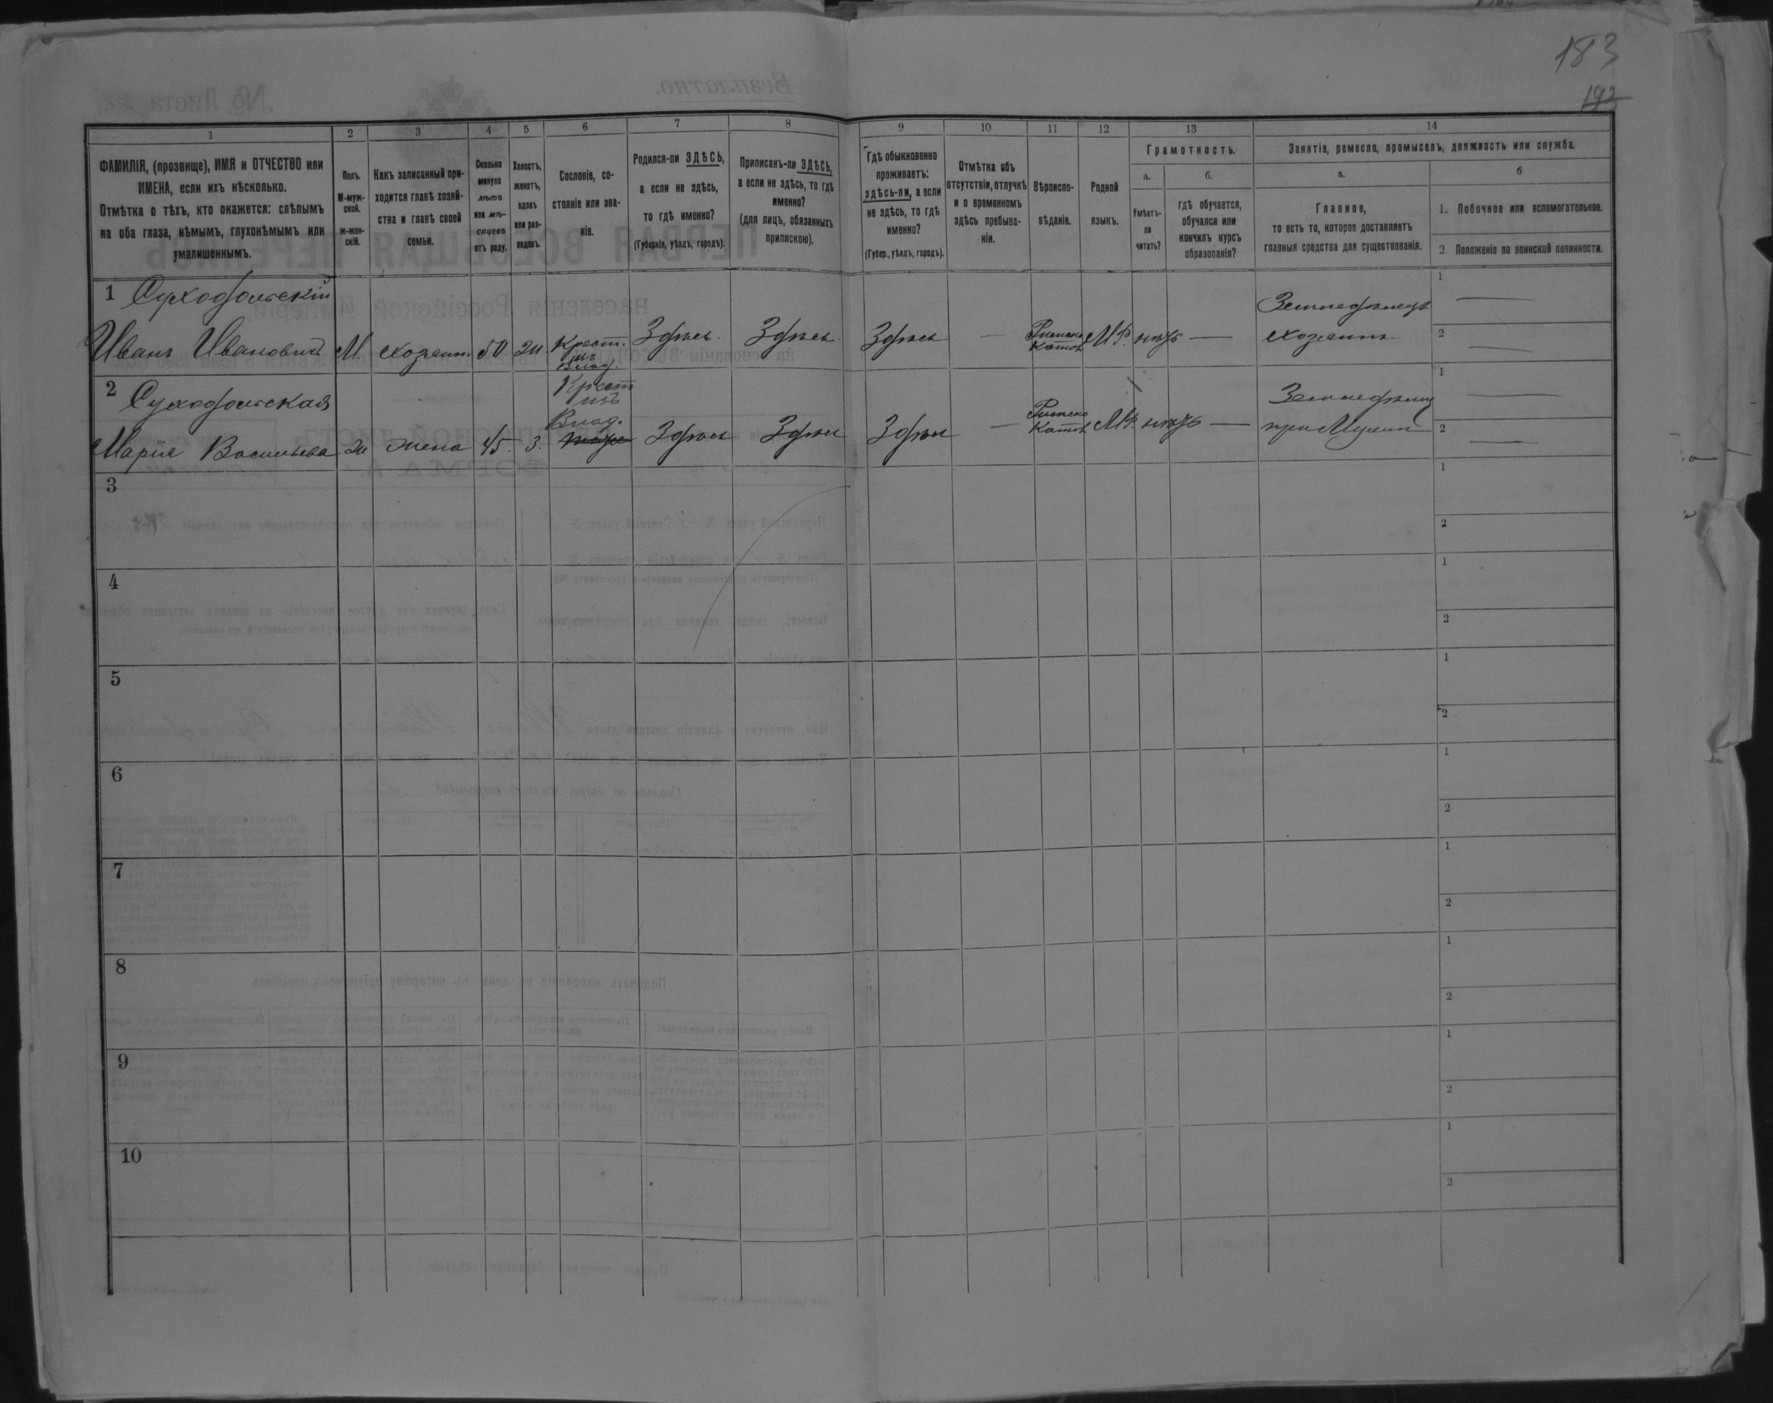 183
192
1 2 3 4 5 6 7 8 9 10 11 12 13 14
ФАМИЛІЯ, (прозвище), ИМЯ и ОТЧЕСТВО или
ИМЕНА, если ихъ нѣсколько.
Отмѣтка о тѣхъ, кто окажется: слѣпымъ
на оба глаза, нѣмымъ, глухонѣмымъ или
умалишеннымъ.
Полъ.
М-муж-
ской.
ж-жен-
скій.
Какъ записанный при-
ходится главѣ хозяй-
ства и главѣ своей
семьи.
Сколько
минуло
лѣтъ
или мѣ-
сяцевъ
отъ роду.
Холостъ,
женатъ,
вдовъ
или раз-
веденъ.
Сословіе, со-
стояніе или зва-
ніе.
Родился-ли ЗДѢСЬ,
а если не здѣсь,
то гдѣ именно?
(Губернія, уѣздъ, городъ).
Приписанъ-ли ЗДѢСЬ,
а если не здѣсь, то гдѣ
именно?
(для лицъ, обязанныхъ
припискою).
Гдѣ обыкновенно
проживаетъ:
здѣсь-ли, а если
не здѣсь, то гдѣ
именно?
(Губер., уѣздъ, городъ).
Отмѣтка объ
отсутствіи, отлучкѣ
и о временномъ
здѣсь пребыва-
ніи.
Вѣроиспо-
вѣданіе.
Родной
языкъ.
Грамотность.
а.
Умѣетъ-
ли
читать?
б.
гдѣ обучается,
обучался или
кончилъ курсъ
образованія?
Занятіе, ремесло, промыселъ, должность или служба.
а.
Главное,
то есть то, которое доставляетъ
главныя средства для существованія.
б
1. Побочное или вспомогательное.
2 Положеніе по воинской повинности.
1 Суходольскій
Иванъ Ивановичъ М. хозяин. 50 2и Крест. из Влад. Здѣсь Здѣсь Здѣсь — Римско Катол. нѣтъ — Земледѣлецъ хозяинъ
1 —
2 —
2 Суходольская
Марія Васильева жена 45 з. Крест из Влад. Здѣсь Здѣсь Здѣсь — Римско Катол нѣтъ — при Мужѣ
1 —
2 —
3
1
2
4
1
2
5
1
2
6
1
2
7
1
2
8
1
2
9
1
2
10
1
2